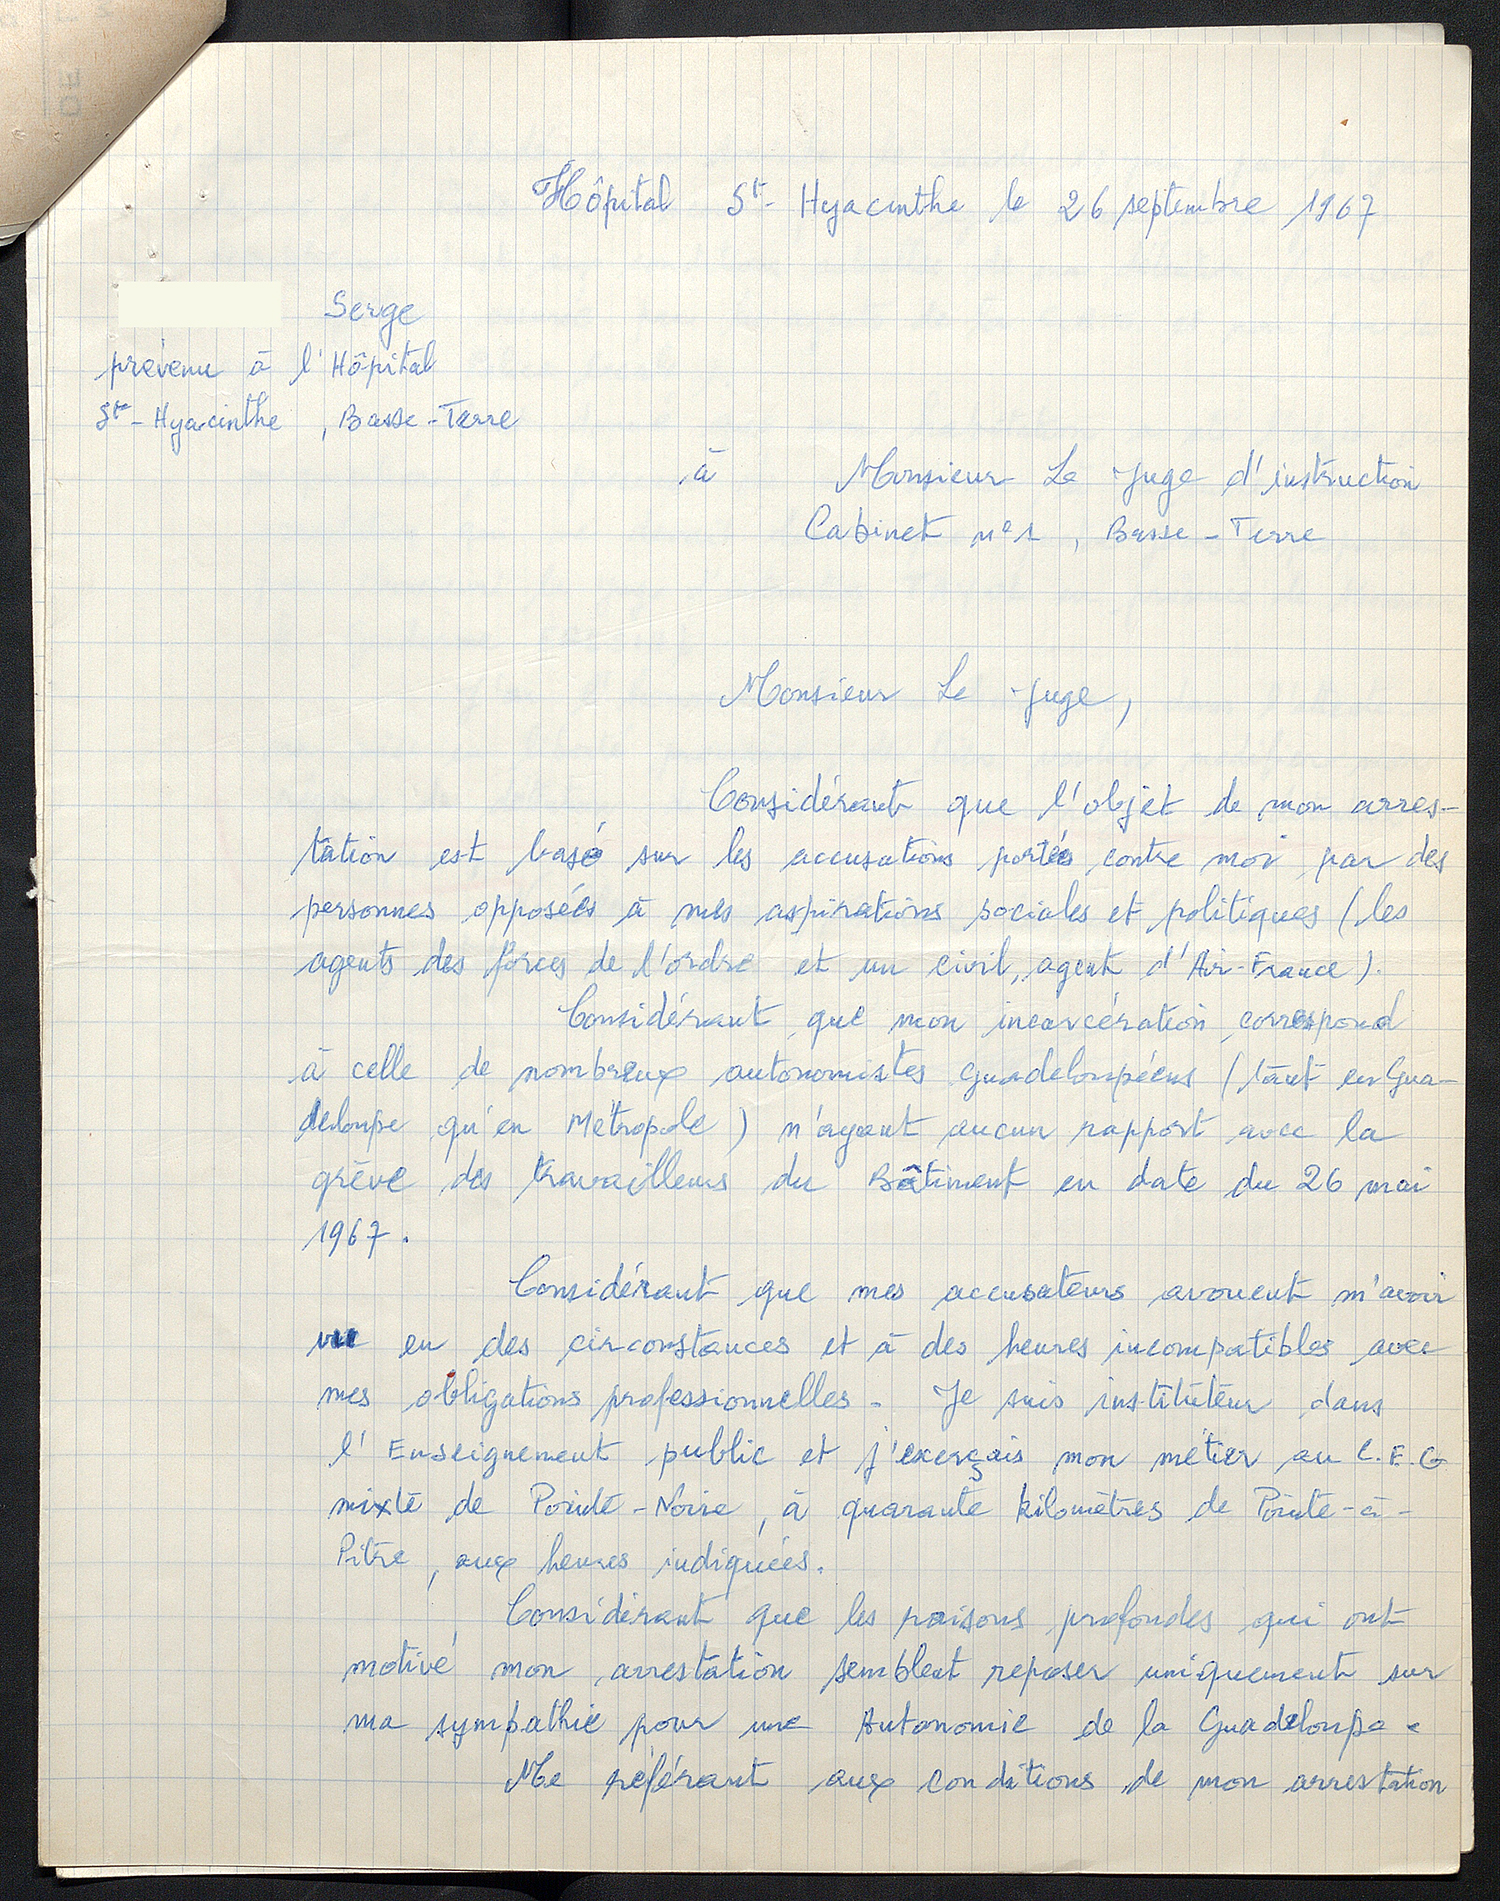 Hôpital St-Hyacinthe le 26 septembre 1967
Serge
prévenu à l'Hôpital
St-Hyacinthe, Basse-Terre
à Monsieur Le Juge d'instruction
Cabinet n°1, Basse-Terre
Monsieur Le Juge,
Considérant que l'objet de mon arres-
tation est basé sur les accusations portées contre moi par des
personnes opposées à mes aspirations sociales et politiques (les
agents des forces de l'ordre et un civil, agent d'Air-France).
Considérant que mon incarcération correspond
à celle de nombreux autonomistes Guadeloupéens (tant en Gua-
deloupe qu'en Métropole) n'ayant aucun rapport avec la
grève des travailleurs du Bâtiment en date du 26 mai
1967.
Considérant que mes accusateurs avouent m'avoir
vu en des circonstances et à des heures incompatibles avec
mes obligations professionnelles. Je suis instituteur dans
l'Enseignement public et j'exerçais mon métier au C.E.G
mixte de Pointe-Noire, à quarante kilomètres de Pointe-à-
Pitre, aux heures indiquées.
Considérant que les raisons profondes qui ont
motivé mon arrestation semblent reposer uniquement sur
ma sympathie pour une Autonomie de la Guadeloupe.
Me référant aux conditions de mon arrestation